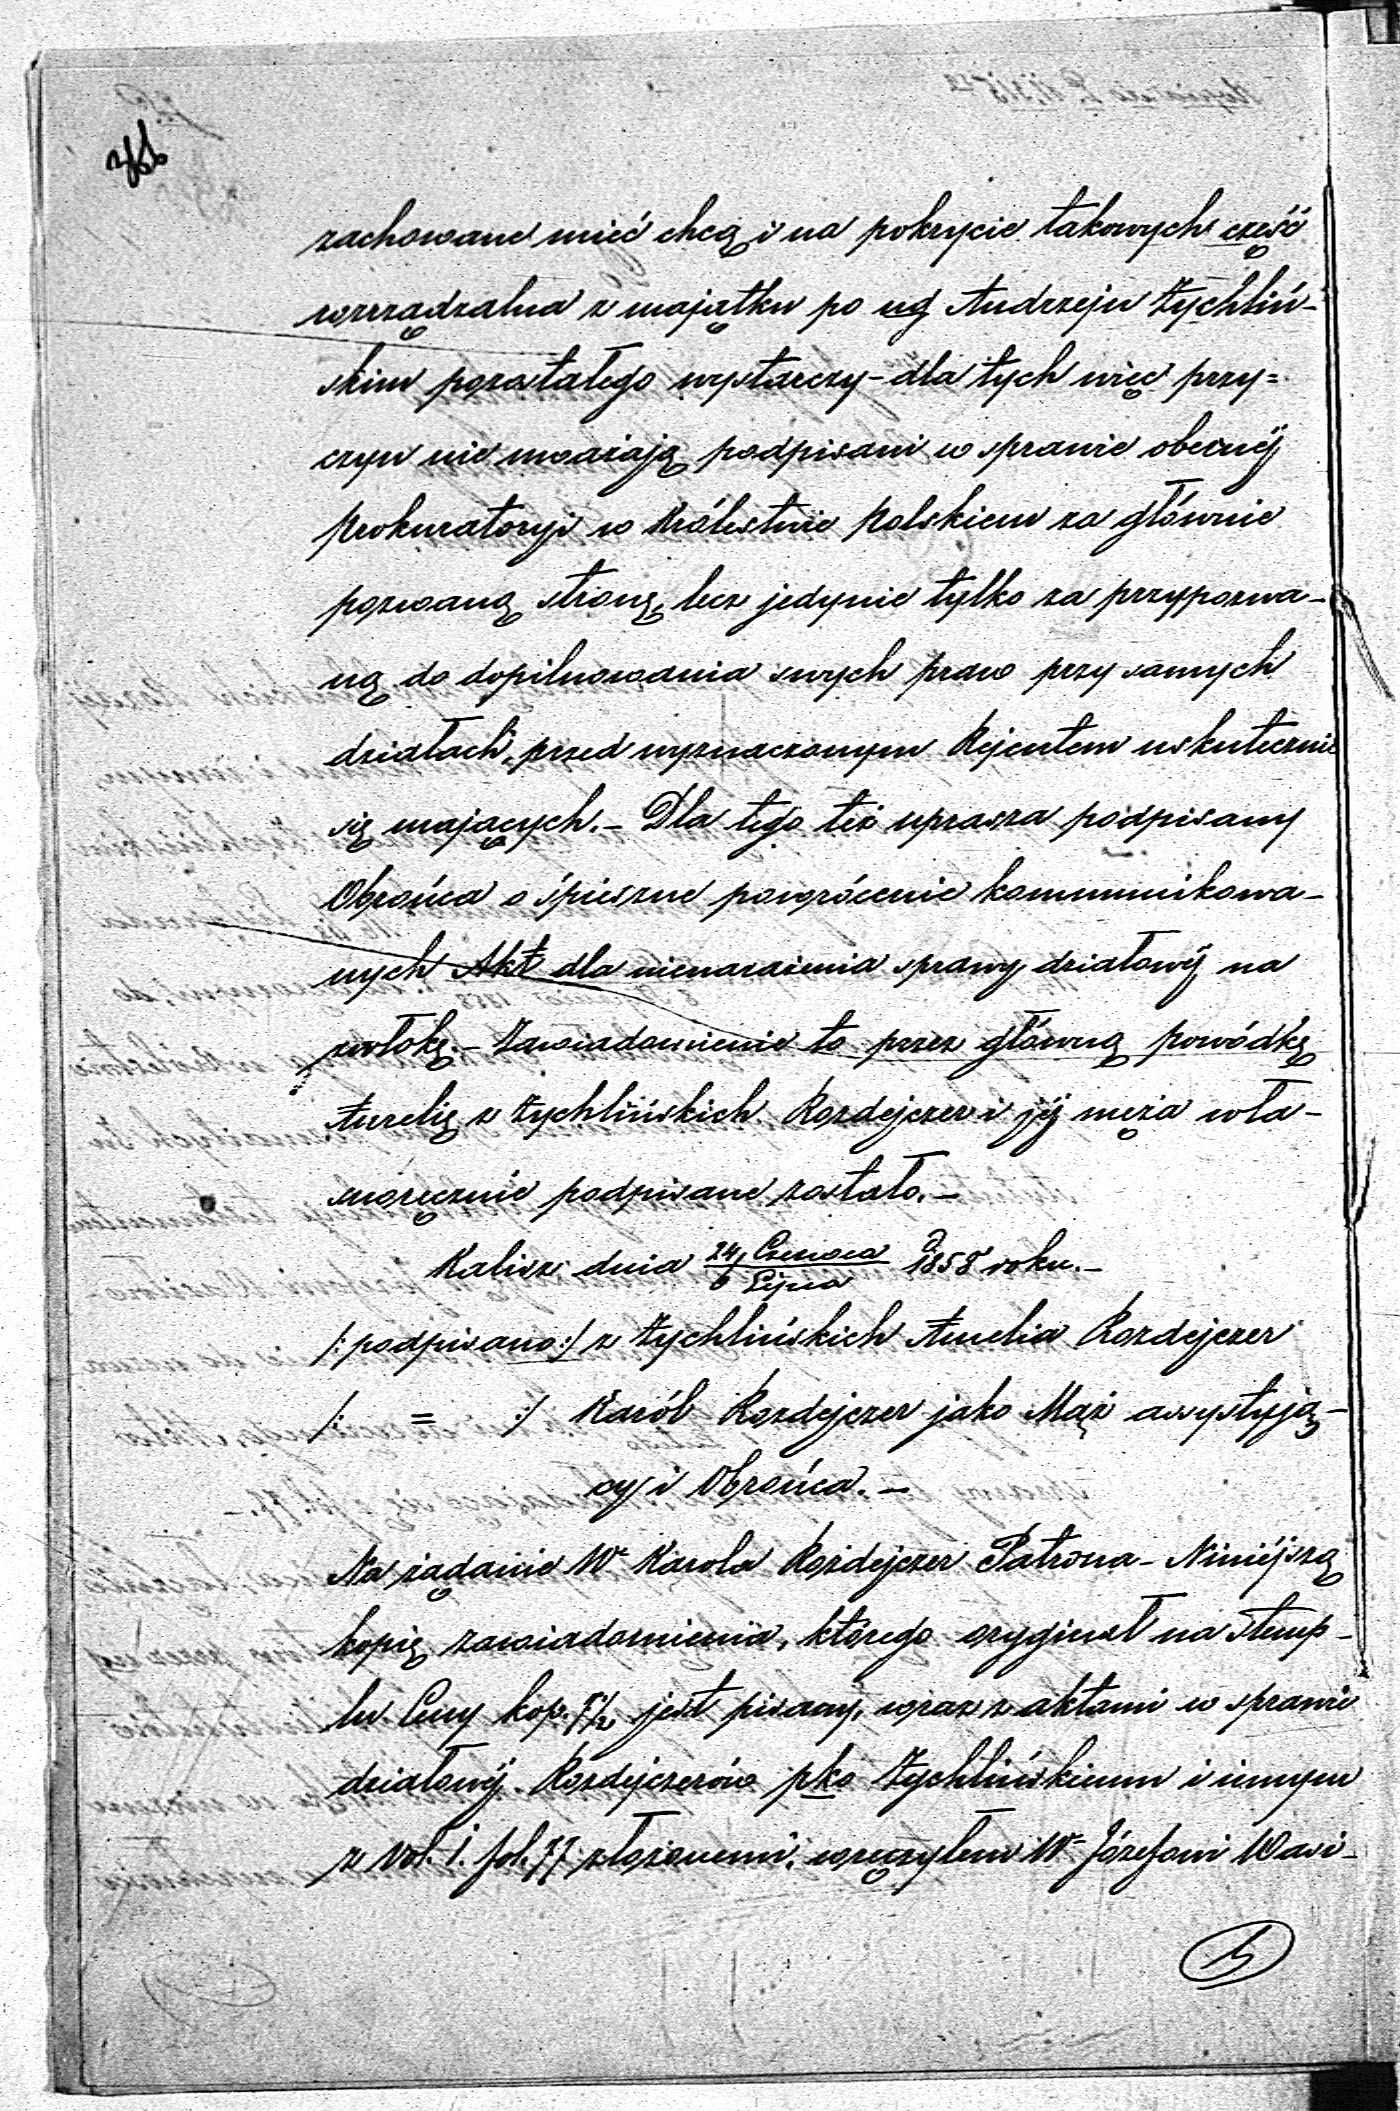 zachowane mieć chcą i na pokrycie takowych cześć
rozrządzalna z majątku po ug Andrzeju Żychliń-
skim pozostałego wystarczy – dla tych więc przy=
czyn nie uważają podpisani w sprawie obecnéj
Prokuratoryi w Królestwie Polskiem za głównie
pozwaną stronę, lecz jedynie tylko za przypozwa-
ną do dopilnowania swych praw przy samych
działach, przed wyznaczonym Rejentem uskutecznić
się mających. – Dla tego też uprasza podpisany
Obrońca o śpieszne powrócenie kommunikowa-
nych Akt dla nienarażenia sprawy działowéj na
zwłokę. – Zawiadomienie to przez główną powódkę
Aurelię z Żychlińskich Rozdejczer i jéj męża wła-
snoręcznie podpisane zostało. –
Kalisz dnia 24/6 Czerwca/Lipca 1858 roku. –
/: podpisano :/ z Żychlińskich Aurelia Rozdejczer
/: = :/ Karól Rozdejczer jako Mąż assystują-
cy i Obrońca. –
Na żądanie W Karola Rozdejczer Patrona – Niniéjszą
kopię zawiadomienia, którego oryginał na stemp-
lu Ceny kop. 7½ jest pisany, wraz z aktami w sprawie
działowéj Rozdejczerów pko Żychlińskiemu i innym
z Vol. I. fol. 77 złożonemi, wręczyłem W Józefowi Wasi-